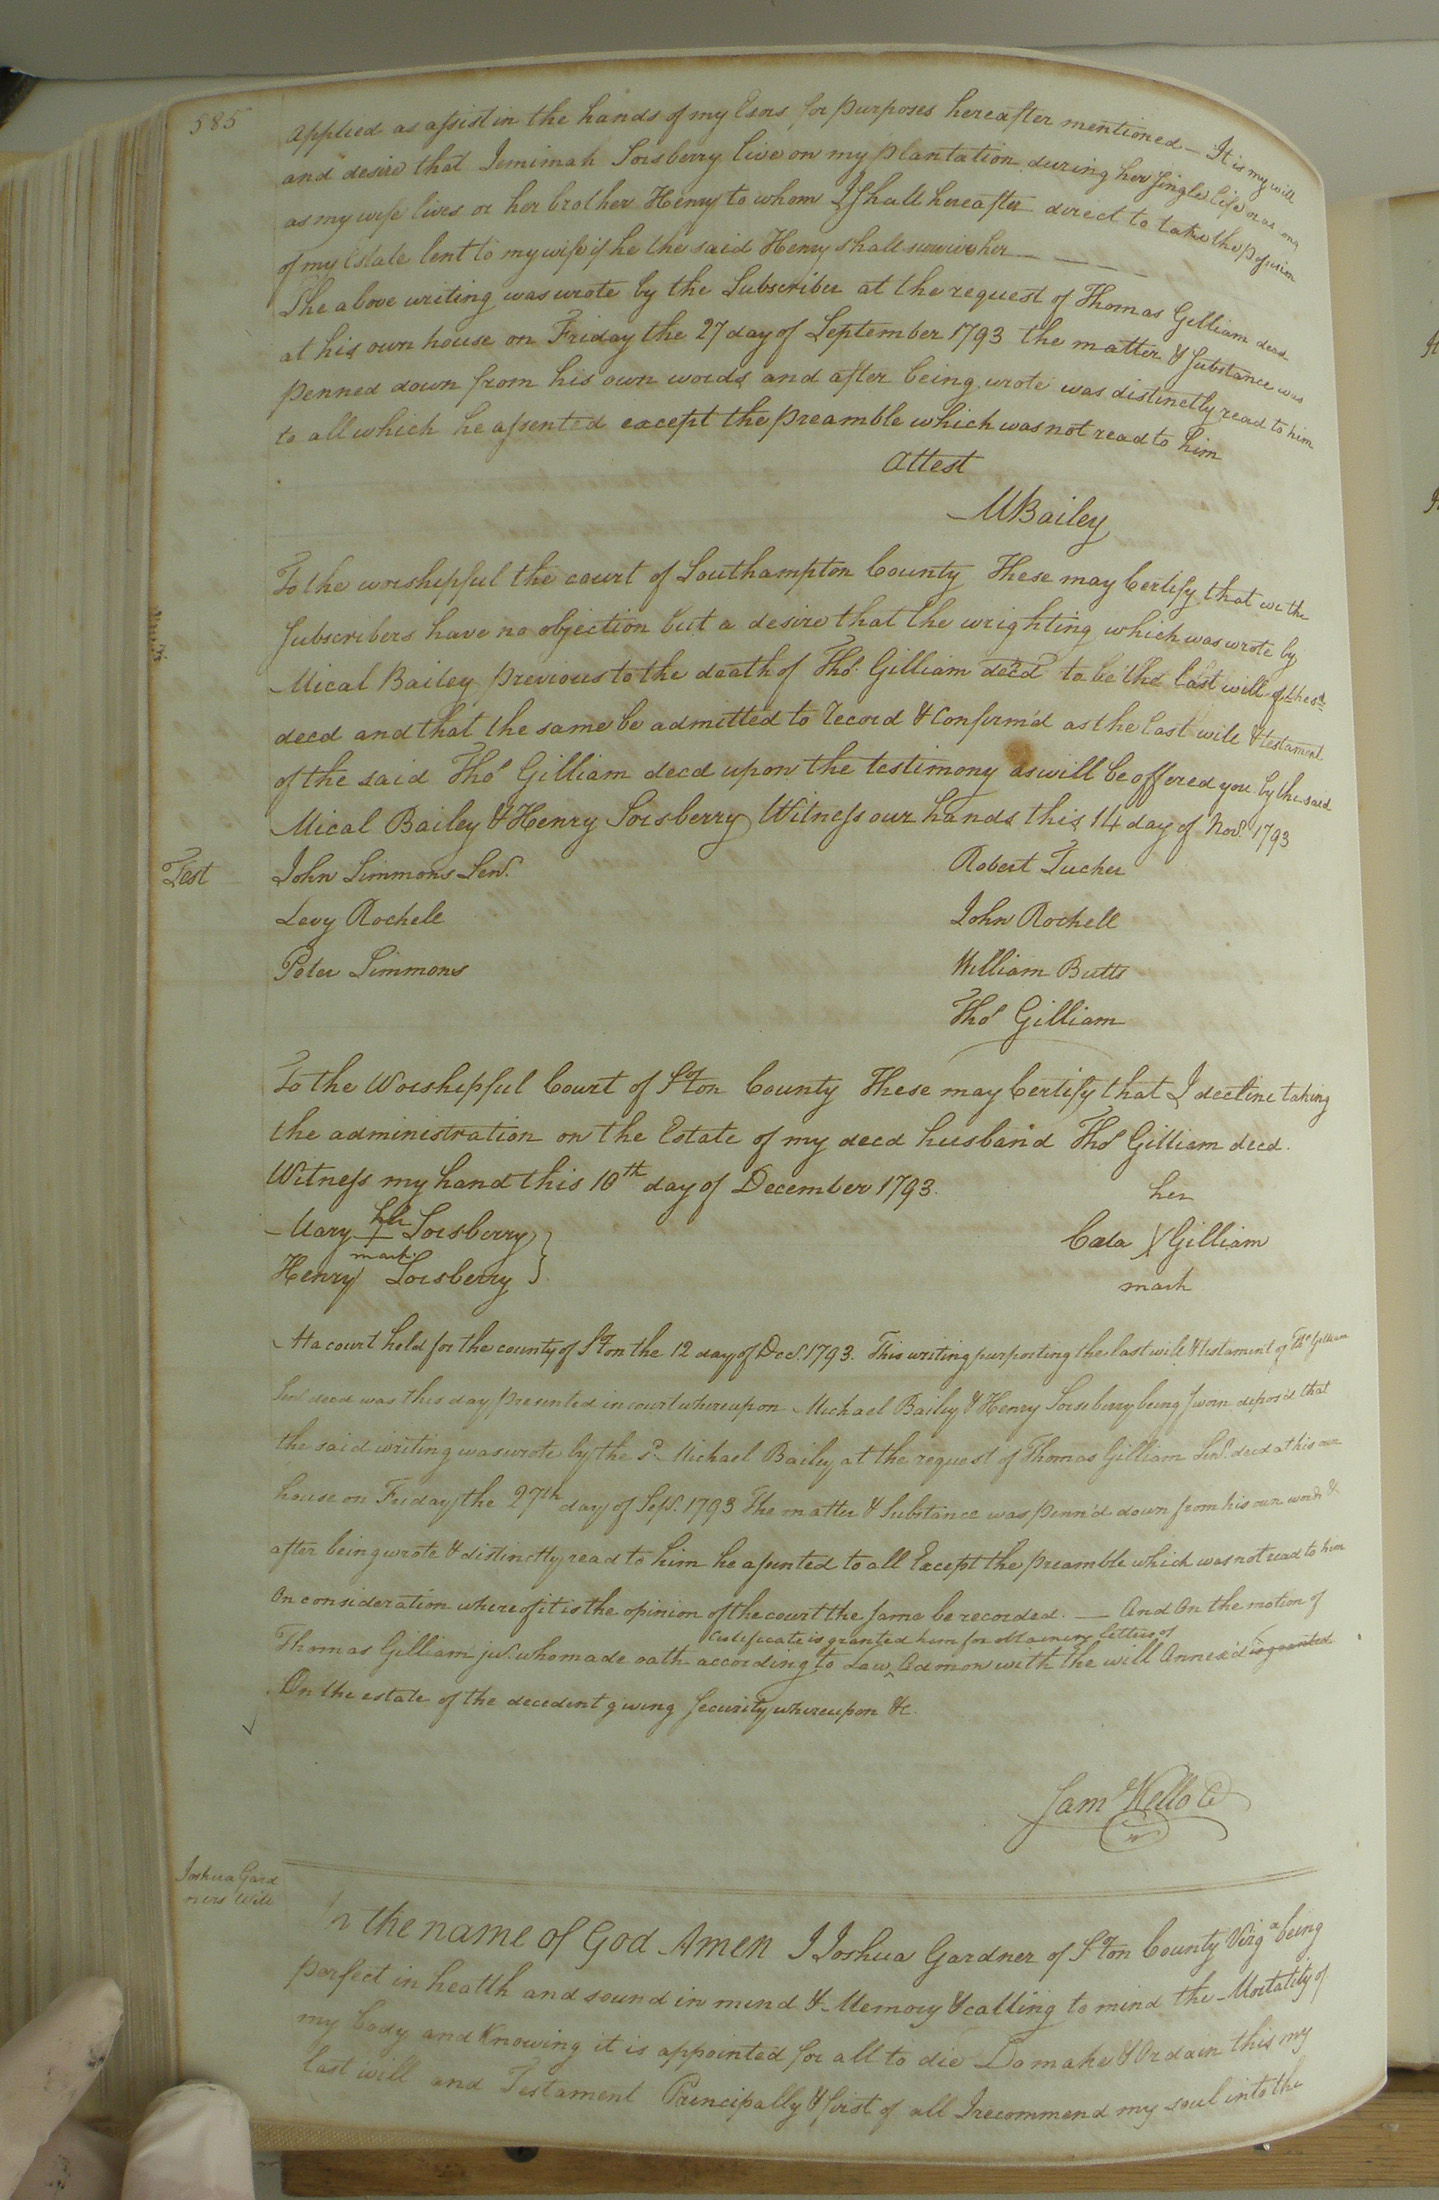 585
applied as assist in the hands of my Exors for purposes hereafter mentioned — It is my will
and desire that Jemimah Sorsberry live on my plantation during her single life or as long
as my wife lives or her brother Henry to whom I shall hereafter direct to take the possession
of my Estate lent to my wife if he the said Henry shall survive her — — — —
The above writing was wrote by the Subscriber at the request of Thomas Gilliam decd
at his own house on Friday the 27 day of September 1793 the matter & Substance was
penned down from his own words and after being wrote was distinctly read to him
to all which he assented except the preamble which was not read to him
Attest
M Bailey
To the worshipful the court of Southampton County These may Certify that we the
Subscribers have no objection but a desire that the wrighting which was wrote by
Mical Bailey previous to the death of Tho.s Gilliam decd to be the last will of the sd.
decd and that the same be admitted to record & Confirm'd as the last will & testament
of the said Tho.s Gilliam decd upon the testimony as will be offered you by the said
Mical Bailey & Henry Sorsberry Witness our hands this 14 day of Nov.r 1793
Test John Simmons Sen.r Robert Tucker
Levy Rochell John Rochell
Peter Simmons William Butts
Tho.s Gilliam
To the Worshipful Court of S.oton County These may Certify that I decline taking
the administration on the Estate of my decd husband Tho.s Gilliam decd.
Witness my hand this 10th day of December 1793.
her
Mary + Sorsberry } Cata X Gilliam
mark
Henry Sorsberry } mark
At a court held for the county of S.oton the 12 day of Dec.r 1793. This writing purporting the last will & testament of Tho Gilliam
Sen.r decd was this day presented in court whereupon Michael Bailey & Henry Sorseberry being sworn depos'd that
the said writing was wrote by the s.d Michael Bailey at the request of Thomas Gilliam Sen.r decd at his own
house on Friday the 27th day of Sep.r 1793 The matter & Substance was penn'd down from his own words &
after being wrote & distinctly read to him he assented to all Except the preamble which was not read to him
On consideration whereof it is the opinion of the court the same be recorded. — And On the motion of
Certificate is granted him for obtaining letters of
Thomas Gilliam ju.r who made oath according to Law ^ Admon with the will Annex'd is granted
On the estate of the decedent giving Security whereupon &c.
Sam.l Kello C
Joshua Gard
ners Will
In the name of God Amen I Joshua Gardner of S.oton County Virg.a being
perfect in health and sound in mind & Memory & calling to mind the Mortality of
my body and Knowing it is appointed for all to die Do make & Ordain this my
last will and Testament Principally & first of all I recommend my soul into the